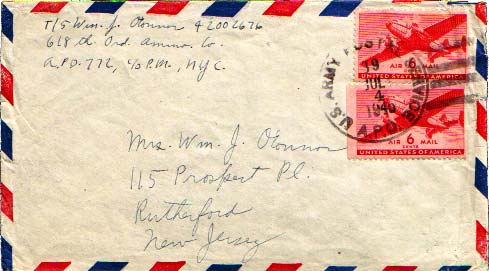 T/5 Wm. J. O'Connor 42002676
618 th. Ord. Ammo. Co.
A.P.O. 772, c/o P.M., N.Y.C.
U.S. ARMY POSTAL SERVICE
A.P.O.
19
JUL
4
AIR 6 MAIL
UNITED STATES OF AMERICA
AIR 6 MAIL
CENTS
UNITED STATES OF AMERICA
Mrs. Wm. J. O'Connor
115 Prospect Pl.
Rutherford
New Jersey